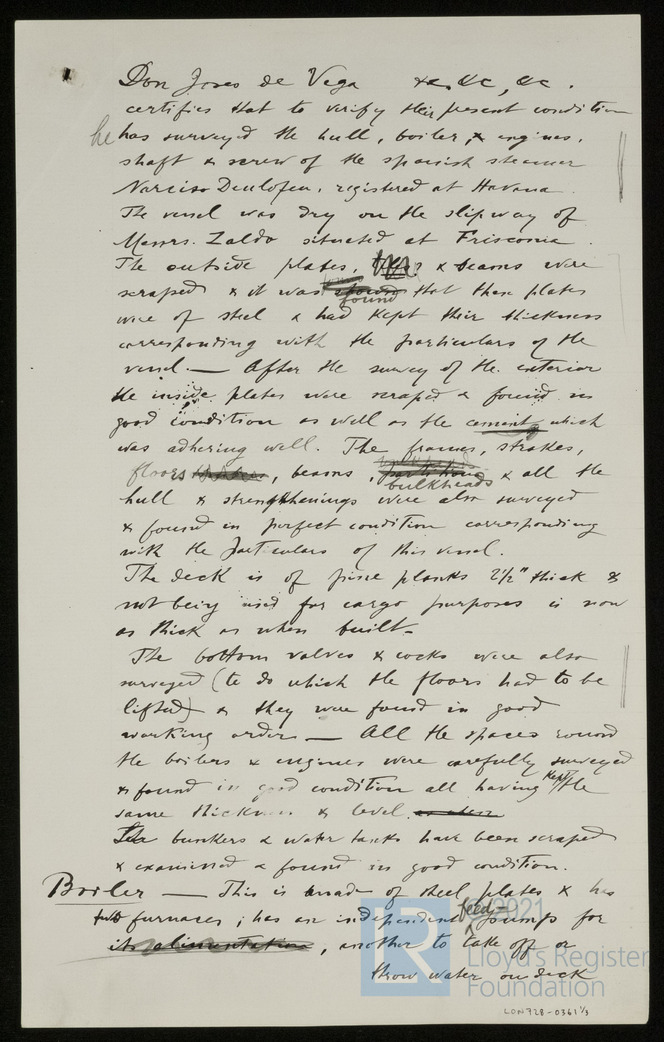 Don Jores de Vega &c, &c, &c.
certifies that to verify their present condition
he has surveyed the hull, boiler, & engines,
shaft & screw of the spanish steamer
Narciso Deulofeu, registered at Havana.
The vessel was dry on the slipway of
Messrs. Zaldo situated at Frisconia.
The outside plates, & beams were
scraped & it was found that these plates
were of steel & had kept their thickness
corresponding with the particulars of the
vessel. — After the survey of the exterior
the inside plates were scraped & found in
good condition as well as the cement which
was adhering well. The frames, strakes,
floors, beams, bulkheads & all the
hull & strengthenings were also surveyed
& found in perfect condition corresponding
with the particulars of this vessel.
The deck is of pine planks 2 1/2" thick &
not being used for cargo purposes is now
as thick as when built-
The bottom valves & cocks were also
surveyed (to do which the floors had to be
lifted) & they were found in good
working order — All the spaces round
the boilers & engines were carefully surveyed
& found in good condition all having kept the
same thickness & level
The bunkers & water tanks have been scraped
& examined & found in good condition.
Boiler — This is made of steel plates & has
two furnaces; has an independent feed-pump for
its alimentation, another to take off or
throw water on deck
2021
LR
Lloyd's Register
Foundation
LON728-0361 1/3